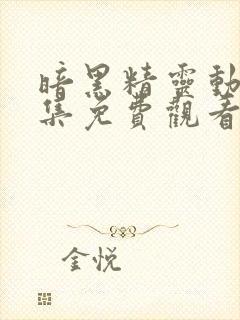 暗黑精靈動
集免費觀看
金悅